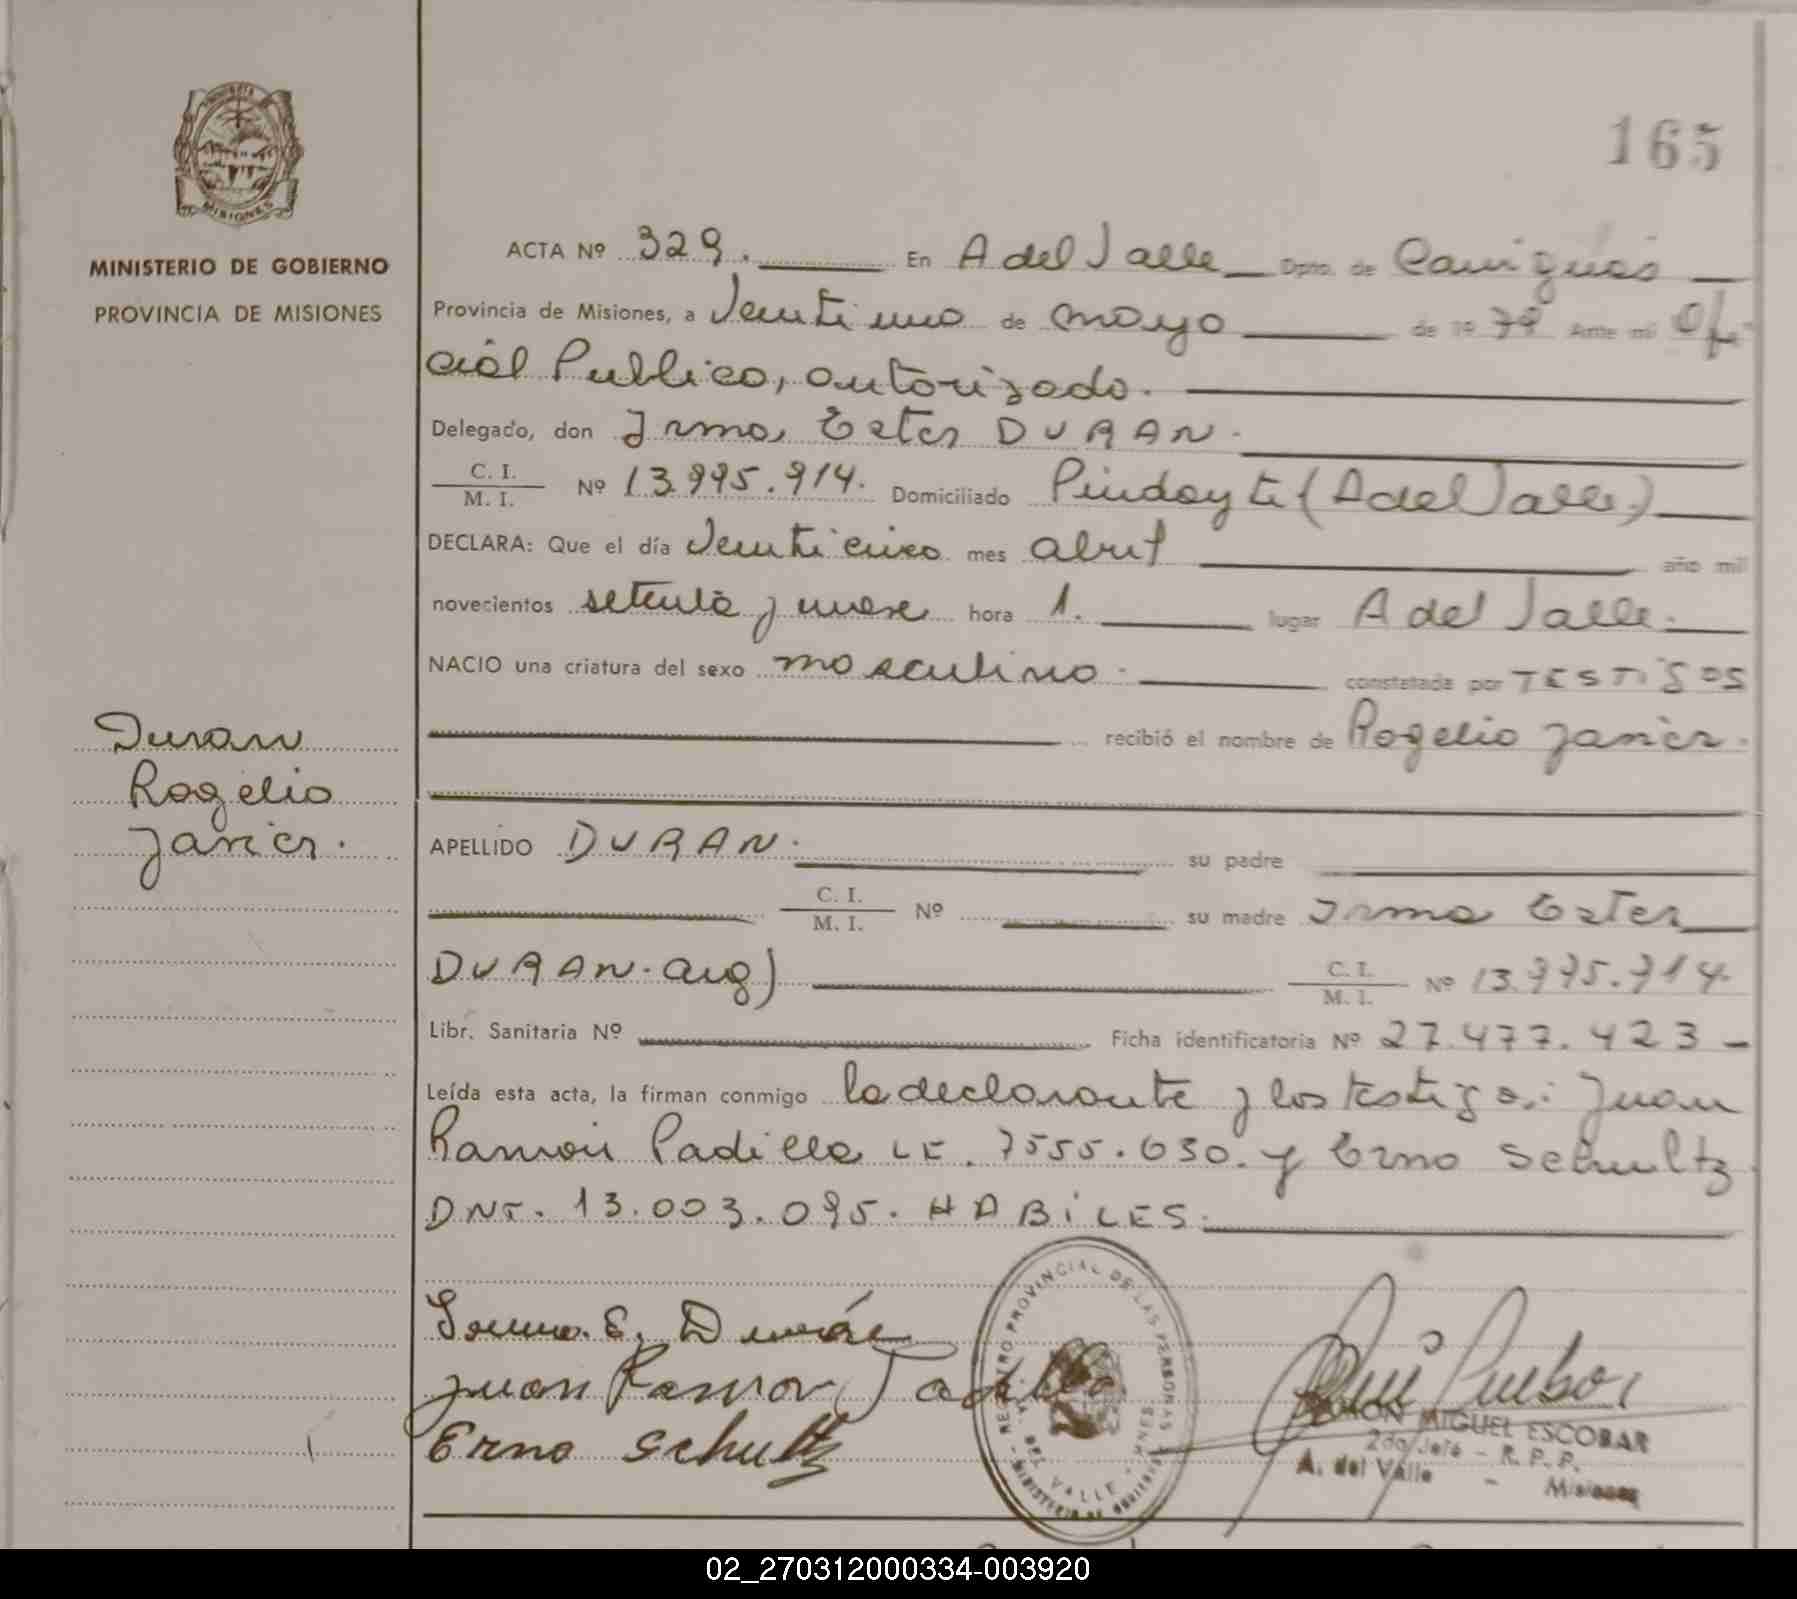 165
PROVINCIA DE
MISIONES
MINISTERIO DE GOBIERNO
PROVINCIA DE MISIONES
ACTA Nº 329. En A del Valle Dpto. de Cainguás
Provincia de Misiones, a Veintiuno de mayo de 1979 Ante mi Ofi
cial Publico, autorizado.
Delegado, don Irma Ester DURAN.
C. I.
M. I. Nº 13.995.914. Domiciliado Pindayti (A del Valle)
DECLARA: Que el día Veinticinco mes abril año mil
novecientos setenta y nueve hora 1. lugar A del Valle.
NACIO una criatura del sexo masculino. constatada por TESTIGOS
recibió el nombre de Rogelio Javier.
Duran
Rogelio
Javier.
APELLIDO DURAN. su padre
C. I.
M. I. Nº su madre Irma Ester
DURAN. arg) C. I.
M. I. Nº 13.995.914.
Libr. Sanitaria Nº Ficha identificatoria Nº 27.477.423
Leída esta acta, la firman conmigo la declarante y los testigos: Juan
Ramon Padilla LE. 7555.630. y Erno Schultz
DNI. 13.003.095. HABILES.
Irma E. Durán
Juan Ramon Padilla
Erno Schultz
REGISTRO PROVINCIAL DE LAS PERSONAS
A. DEL VALLE
MINISTERIO DE GOBIERNO
RAMON MIGUEL ESCOBAR
2do Jefe - R. P. P.
A. del Valle - Misiones
02_270312000334-003920